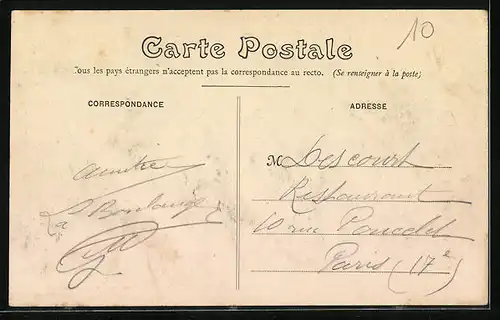 10
Carte Postale
Tous les pays étrangers n'acceptent pas la correspondance au recto. (Se renseigner à la poste)
CORRESPONDANCE
ADRESSE
M Descourt
Restaurant
10 rue Poncelet
Paris (17e
amitié